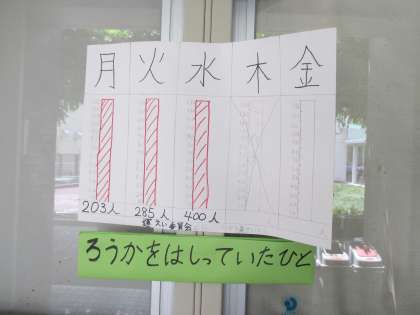 月 火 水 木 金
203人 285人 400人
ろうかをはしっていたひと